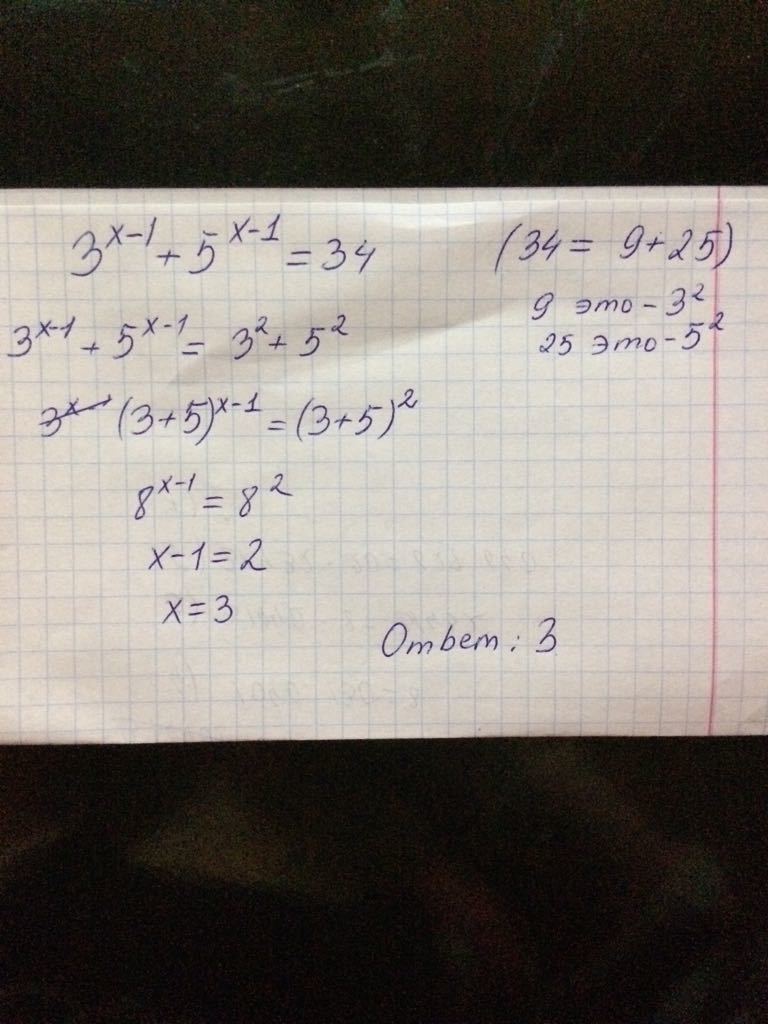 3^{x-1} + 5^{x-1} = 34 (34 = 9 + 25)
9 это - 3^2
3^{x-1} + 5^{x-1} = 3^2 + 5^2
25 это - 5^2
(3+5)^{x-1} = (3+5)^2
8^{x-1} = 8^2
x-1 = 2
x = 3
Ответ: 3